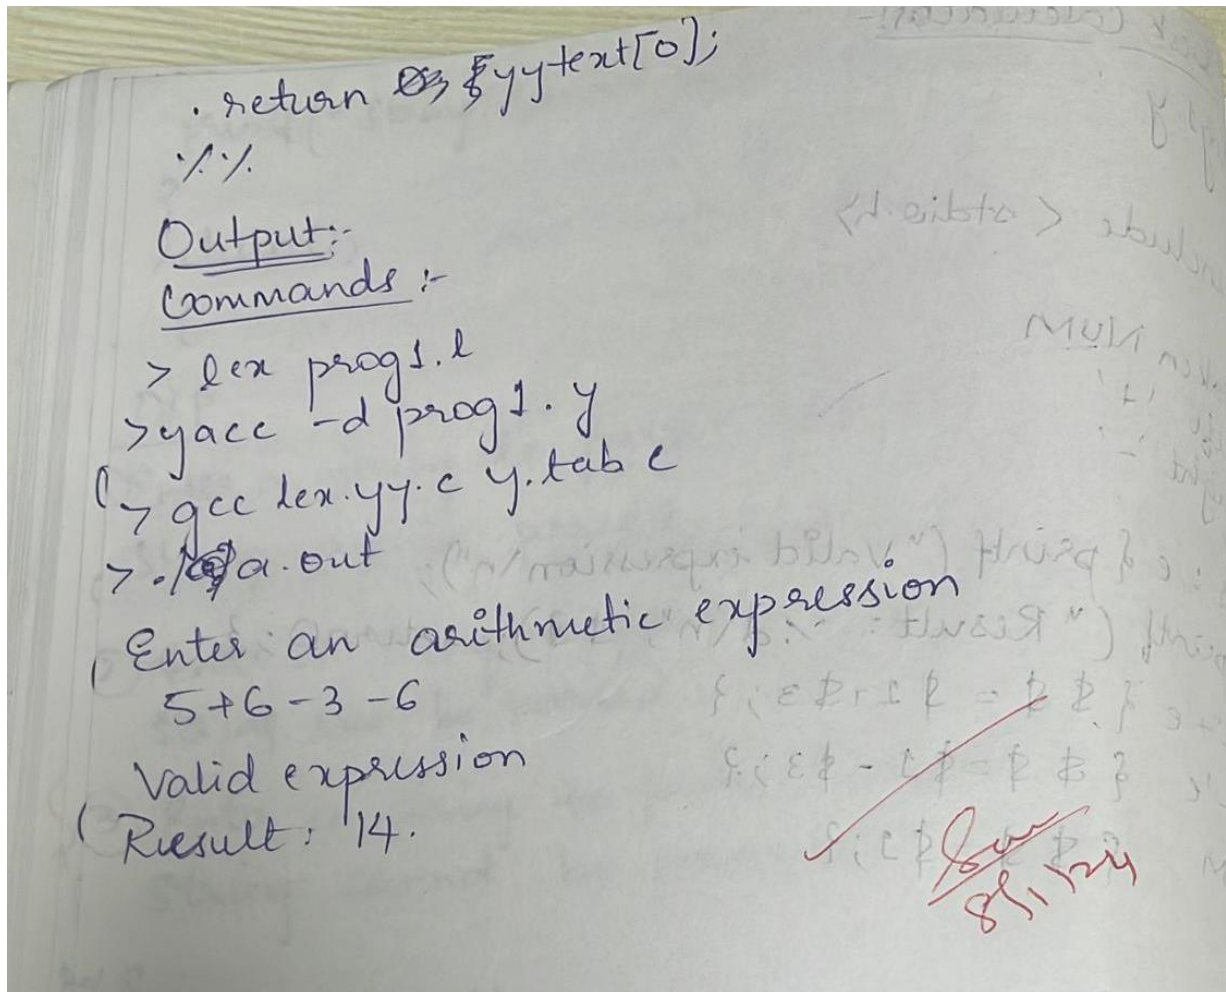 . return yytext[0];
%%
Output:-
Commands :-
> lex prog1.l
> yacc -d prog1.y
> gcc lex.yy.c y.tab c
> ./a.out
Enter an arithmetic expression
5+6-3-6
Valid expression
Result: 14.
8/1/24